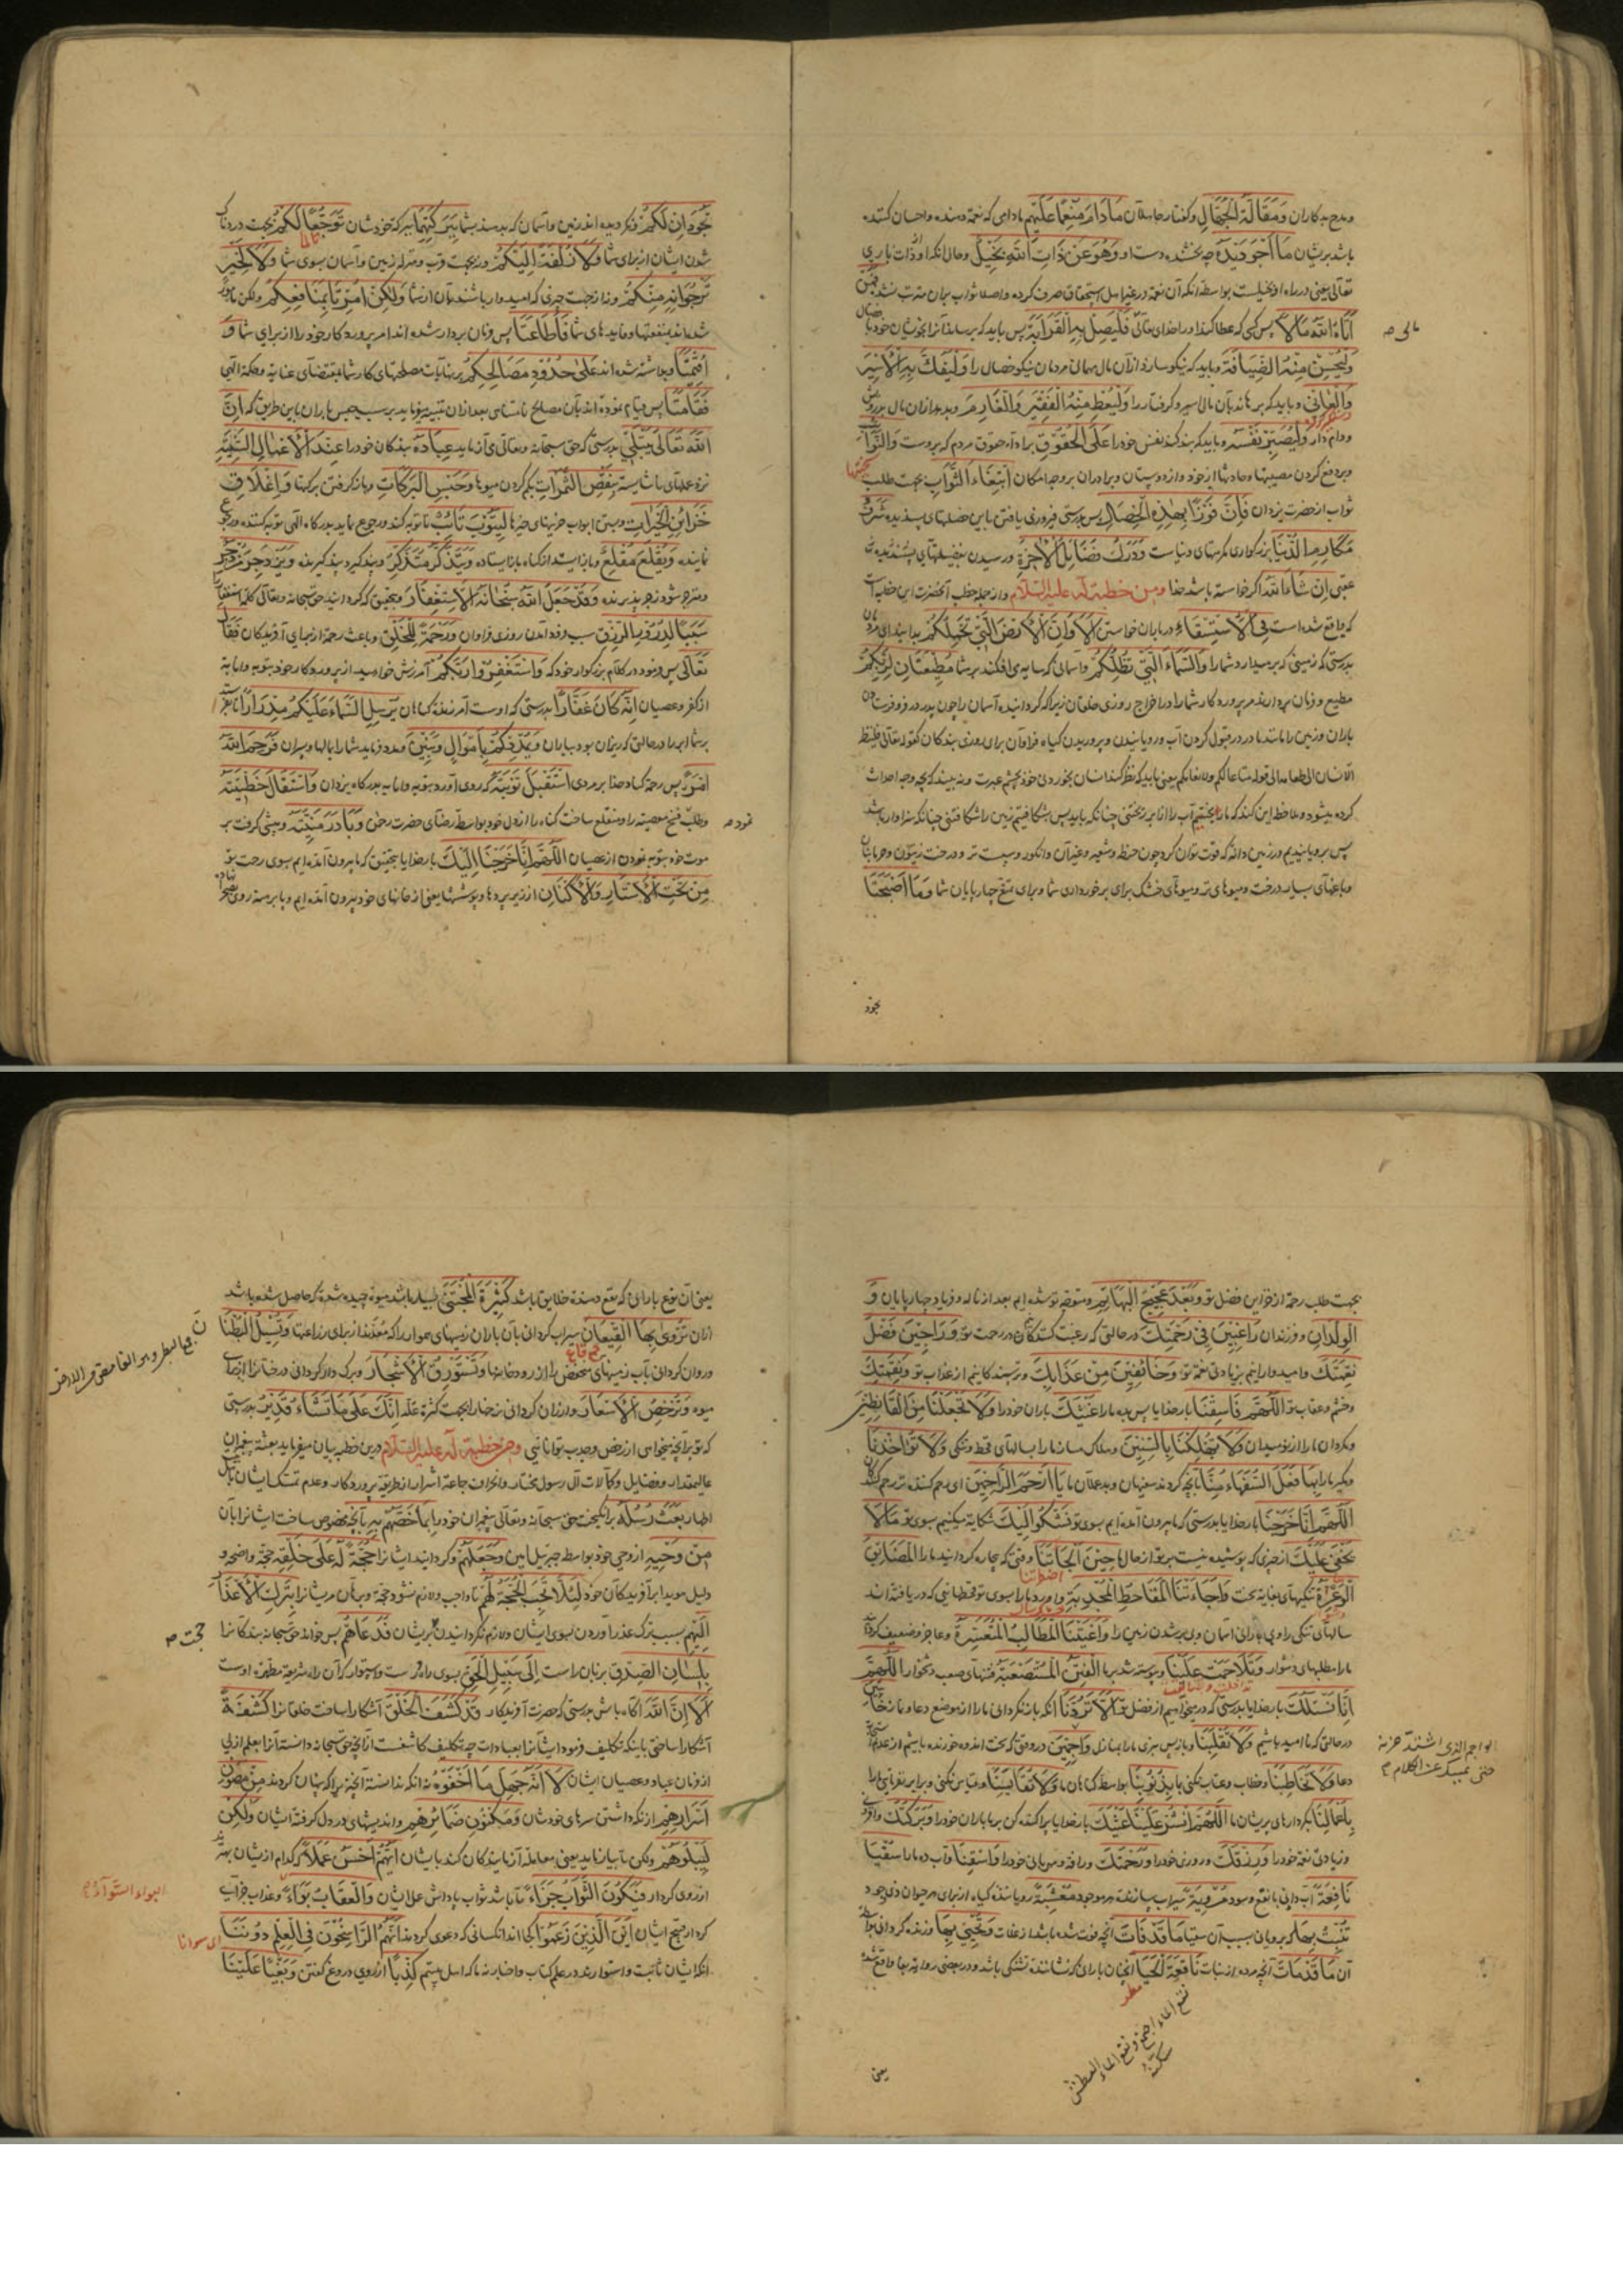 ومدح بدکاران وَمَقَالَةَ الْجُهَّالِ وکفتار جاهلان مَا دَامَ مُنْعِمًا عَلَيْهِم مادامی که نعمة دهنده واحسان کننده
باشد بریشان مَا أَجْوَدَ يَدَهُ چه بخشنده دست او وَهُوَ عَنْ ذَاتِ اللَّهِ بَخِيلٌ وحال انکه او از ذات باری
تعالی یعنی در راه او بخیلست بواسطه انکه آن نعمة در غیر اهل استحقاق صرف کرده
آتَاهُ اللَّهُ مَالًا پس کسی که عطا کند او را خدای تعالی فَلْيَصِلْ بِهِ الْقَرَابَةَ پس باید که برساند آنرا بخویشان خود
وَلْيُحْسِنْ مِنْهُ الضِّيَافَةَ وباید که نیکو سازد از آن مال مهمانی مردمان نیکو خصال را وَلْيَفُكَّ بِهِ الْأَسِيرَ
وَالْعَانِيَ وباید که برهاند بآن مال اسیر وکرفتار را وَلْيُعْطِ مِنْهُ الْفَقِيرَ وَالْغَارِمَ وبدهد ازان مال
ووام دار وَلْيَصْبِرْ نَفْسَهُ وباید که بند کند نفس خود را عَلَى الْحُقُوقِ بر اداء حقوق مردم که بروست وَالنَّوَائِبِ
وبر دفع کردن مصیبتها وحادثها از خود واز دوستان وبرادران بر وجه امکان ابْتِغَاءَ الثَّوَابِ بجهت طلب
ثواب از حضرت یزدان فَإِنَّ فَوْزًا بِهَذِهِ الْخِصَالِ پس بدرستی فیروزی یافتن باین خصلتهای پسندیده شَرَفُ
مَكَارِمِ الدُّنْيَا بزرکواری مکرمتهای دنیاست وَدَرْكُ فَضَائِلِ الْآخِرَةِ ورسیدن بفضیلتهای پسندیده
عقبی إِنْ شَاءَ اللَّهُ اکر خواسته باشد خدا ومن خطبة له علیه السلام واز جمله خطب آنحضرت این خطبه است
که واقع شده است فِي الْاسْتِسْقَاءِ در باران خواستن أَلَا وَإِنَّ الْأَرْضَ الَّتِي تَحْمِلُكُمْ بدانید ای مردمان
بدرستی که زمینی که برمیدارد شما را وَالسَّمَاءَ الَّتِي تُظِلُّكُمْ وآسمانی که سایه می افکند بر شما مُطِيعَتَانِ لِرَبِّكُمْ
مطیع وفرمان بردارند مر پروردکار شما را در اخراج روزی خلقان زیرا که کردانیده آسمان را چون پدر در فرو فرستادن
باران وزمین را مانند مادر در قبول کردن آب ورویانیدن وپروریدن کیاه فراوان برای روزی بندکان کقوله تعالی فلینظر
الانسان الی طعامه الی قوله متاعا لکم ولانعامکم یعنی باید که نظر کند انسان بخوردنی خود بچشم عبرت وببیند که بچه وجه احداث
کرده میشود وملاحظه این کند که ما ریختیم آب را از ابر ریختنی چنانکه باید پس بشکافتیم زمین را شکافتنی چنانکه سزاوار باشد
پس برویانیدیم در زمین دانه که قوت توان کرد چون حنطه وشعیر وغیر آن وانکور وسپست تر ودرخت زیتون
وباغهای بسیار درخت ومیوهای تر ومیوهای خشک برای برخورداری شما وبرای نفع چارپایان شما وَمَا أَصْبَحَتَا
مالی صح
بجود
تَجُودَانِ لَكُمْ ونکردیده اند زمین وآسمان که بدهند بشما بَرَكَتَهُمَا برکة خودشان تَوَجُّعًا لَكُمْ بجهت دردناک
شدن ایشان از برای شما وَلَا زُلْفَةً إِلَيْكُمْ ونه بجهت قرب ومنزلة زمین وآسمان بسوی شما وَلَا لِخَيْرٍ
تَرْجُوَانِهِ مِنْكُمْ ونه از جهت چیزی که امیدوار باشند بآن از شما وَلَكِنْ أُمِرَتَا بِمَنَافِعِكُمْ ولکن مامور
شده اند بمنفعتها وفایدهای شما فَأَطَاعَتَا پس فرمان بردار شده اند امر پروردکار خود را از برای شما وَ
أُقِيمَتَا وبداشته شده اند عَلَى حُدُودِ مَصَالِحِكُمْ بر نهایات مصلحتهای کار شما بمقتضای عنایة وحکمة الهی
فَقَامَتَا پس قیام نموده اند بآن مصالح إِنَّ
اللَّهَ تَعَالَى يَبْتَلِي بدرستی که حق سبحانه وتعالی می آزماید عِبَادَهُ بندکان خود را عِنْدَ الْأَعْمَالِ السَّيِّئَةِ
نزد عملهای ناشایسته بِنَقْصِ الثَّمَرَاتِ بکم کردن میوها وَحَبْسِ الْبَرَكَاتِ وبازکرفتن برکتها وَإِغْلَاقِ
خَزَائِنِ الْخَيْرَاتِ وبستن ابواب خزینهای خیرها لِيَتُوبَ تَائِبٌ تا توبه کند ورجوع نماید بدرکاه الهی توبه کننده
نماینده وَيُقْلِعَ مُقْلِعٌ وباز ایستد از کناه بازایستاده وَيَتَذَكَّرَ مُتَذَكِّرٌ وپند کیرد پند کیرنده وَيَزْدَجِرَ مُزْدَجِرٌ
ومنزجر شود زجر پذیرنده وَقَدْ جَعَلَ اللَّهُ سُبْحَانَهُ الْاسْتِغْفَارَ وبتحقیق که کردانید حق سبحانه وتعالی
سَبَبًا لِدُرُورِ الرِّزْقِ سبب فرود آمدن روزی فراوان وَرَحْمَةً لِلْخَلْقِ وباعث رحمة از برای آفریدکان فَقَالَ
تَعَالَى پس فرمود در کلام بزرکوار خود که وَاسْتَغْفِرُوا رَبَّكُمْ آمرزش خواهید از پروردکار خود بتوبه وانابه
از کفر وعصیان إِنَّهُ كَانَ غَفَّارًا بدرستی که اوست آمرزنده کناهان يُرْسِلِ السَّمَاءَ عَلَيْكُمْ مِدْرَارًا
بر شما ابر را در حالتی که ریزان بود بباران وَيُمْدِدْكُمْ بِأَمْوَالٍ وَبَنِينَ ومدد فرماید شما را بمالها وپسران فَرَحِمَ اللَّهُ
امْرَءً پس رحمة کناد خدا بر مردی اسْتَقْبَلَ تَوْبَتَهُ که روی آورد بتوبه وانابه بدرکاه یزدان وَاسْتَقَالَ خَطِيئَتَهُ
وطلب فسخ معصیته را ومنقلع ساخت کناه را از دل خود بواسطه رضای حضرت رحمن وَبَادَرَ مَنِيَّتَهُ وپیشی کرفت بر
موت خود بتوبه نمودن از عصیان اللَّهُمَّ إِنَّا خَرَجْنَا إِلَيْكَ بار خدایا بتحقیق که ما بیرون آمده ایم بسوی رحمت تو
مِنْ تَحْتِ الْأَسْتَارِ وَالْأَكْنَانِ از زیر پردها وپوششها یعنی از خانهای خود بیرون آمده ایم
نمود صح
بجهت طلب رحمة از خزاین فضل تو وَبَعْدَ عَجِيجِ الْبَهَائِمِ ومتوجه تو شده ایم بعد از ناله وفریاد چهارپایان وَ
الْوِلْدَانِ وفرزندان رَاغِبِينَ فِي رَحْمَتِكَ در حالتی که رغبت کنندکان در رحمت تو وَرَاجِينَ فَضْلَ
نِعْمَتِكَ وامیدوارانیم بزیادتی نعمة تو وَخَائِفِينَ مِنْ عَذَابِكَ وترسندکانیم از عذاب تو وَنِقْمَتِكَ
وخشم وعقاب تو اللَّهُمَّ فَاسْقِنَا بار خدایا پس بده ما را غَيْثَكَ باران خود را وَلَا تَجْعَلْنَا مِنَ الْقَانِطِينَ
ومکردان ما را از نومیدان وَلَا تُهْلِكْنَا بِالسِّنِينَ وهلاک مساز ما را بسالهای قحط وتنکی وَلَا تُؤَاخِذْنَا
ومکیر ما را بِمَا فَعَلَ السُّفَهَاءُ مِنَّا بآنچه کردند سفیهان وبدعملان ما يَا أَرْحَمَ الرَّاحِمِينَ ای رحم کننده تر رحم کنندکان
اللَّهُمَّ إِنَّا خَرَجْنَا بار خدایا بدرستی که ما بیرون آمده ایم بسوی تو نَشْكُو إِلَيْكَ شکایة میکنیم بسوی تو مَا لَا
يَخْفَى عَلَيْكَ از چیزی که پوشیده نیست بر تو از حال ما حِينَ أَلْجَأَتْنَا وقتی که بیچاره کردانید ما را الْمَضَائِقُ
الْوَعْرَةُ تنکیهای بغایة سخت وَأَجَاءَتْنَا الْمَقَاحِطُ الْمُجْدِبَةُ وآورد ما را بسوی تو قحطهایی که دریافته اند
سالهای تنکی را وبی بارانی آسمان وبی بر شدن زمین را وَأَعْيَتْنَا الْمَطَالِبُ الْمُتَعَسِّرَةُ وعاجز وضعیف کرد
ما را مطلبهای دشوار وَتَلَاحَمَتْ عَلَيْنَا وپیوسته شد بر ما الْفِتَنُ الْمُسْتَصْعَبَةُ فتنهای صعب ودشخوار اللَّهُمَّ
إِنَّا نَسْئَلُكَ بار خدایا بدرستی که در میخواهیم از فضل تو أَلَّا تَرُدَّنَا انکه باز نکردانی ما را از موضع دعا ونماز خَائِبِينَ
در حالتی که ناامید باشیم وَلَا تَقْلِبَنَا وباز پس نبری ما را بمنازل وَاجِمِينَ در وقتی که سخت اندوه خورنده باشیم از عدم
دعا وَلَا تُخَاطِبَنَا وخطاب وعتاب نکنی ما بِذُنُوبِنَا بواسطه کناهان ما وَلَا تُقَايِسَنَا وقیاس نکنی وبرابر نفرمایی ما را
بِأَعْمَالِنَا بکردارهای پریشان ما اللَّهُمَّ انْشُرْ عَلَيْنَا غَيْثَكَ بار خدایا پراکنده کن بر ما باران خود را وَبَرَكَتَكَ
وزیادتی نعمة خود را وَرِزْقَكَ وروزی خود را وَرَحْمَتَكَ ورافة ومهربانی خود را وَاسْقِنَا وآب ده ما را سُقْيَا
نَافِعَةً آب دادنی با نفع وسود مُرْوِيَةً سیراب سازنده هر موجود مُعْشِبَةً رویاننده کیاه از برای هر حیوان ذی وجود
تُنْبِتُ بِهَا که برویانی بسبب آن سقیا مَا قَدْ فَاتَ آنچه فوت شده باشد از غلات وَتُحْيِي بِهَا وزنده کردانی
آن مَا قَدْ مَاتَ آنچه مرده از نبات نَافِعَةَ الْحَيَا انچنان بارانی که نشاننده تشنکی باشد ودر بعضی روایة
الواجم الذی اشتد حزنه
حتی یمسک عن الکلام
یعنی
یعنی آن نوع بارانی که نفع دهنده خلایق باشد كَثِيرَةَ الْمُجْتَنَى بسیار باشد میوه چیده شده که حاصل شده باشد
ازان تُرْوِي بِهَا الْقِيعَانَ سیراب کردانی بآن باران زمینهای هموار را که معدّند از برای زراعتها وَتُسِيلُ الْبُطْنَانَ
وروان کردانی بآب زمینهای منخفض را از رودخانها وَتَسْتَوْرِقُ الْأَشْجَارَ وبرک دار کردانی درختان را
میوه وَتُرْخِصُ الْأَسْعَارَ وارزان کردانی نرخها را بجهت کثرة غله إِنَّكَ عَلَى مَا تَشَاءُ قَدِيرٌ بدرستی
که تو بر آنچه میخواهی از رخص وجدب توانائی ومن خطبة له علیه السلام درین خطبه بیان میفرماید بعثة پیغمبران
عالیمقدار وفضایل وکمالات آل رسول مختار وانحراف جماعة اشرار از طریقه پروردکار وعدم تمسک ایشان
اطهار بَعَثَ رُسُلَهُ برانکیخت حق سبحانه وتعالی پیغمبران خود را بِمَا خَصَّهُمْ بِهِ بآنچه مخصوص ساخت ایشانرا بآن
مِنْ وَحْيِهِ از وحی خود بواسطه جبرئیل امین وَجَعَلَهُمْ وکردانید ایشانرا حُجَّةً لَهُ عَلَى خَلْقِهِ حجة واضحه و
دلیل هویدا بر آفریدکان خود لِئَلَّا تَجِبَ الْحُجَّةُ لَهُمْ تا واجب ولازم نشود حجة وبرهان مریشانرا بِتَرْكِ الْأَعْذَارِ
إِلَيْهِمْ بسبب ترک عذر آوردن بسوی ایشان ولازم نکردانیدن بریشان فَدَعَاهُمْ پس خواند حق سبحانه بندکانرا
بِلِسَانِ الصِّدْقِ بزبان راست إِلَى سَبِيلِ الْحَقِّ بسوی راه درست واستوار که آن راه شریعة مطهره اوست
أَلَا إِنَّ اللَّهَ آکاه باش بدرستی که حضرت آفریدکار قَدْ كَشَفَ الْخَلْقَ آشکارا ساخت خلقانرا كَشْفَةً
آشکارا ساختنی باینکه تکلیف فرمود ایشانرا بعبادات چه تکلیف کاشفست از آنچه حق سبحانه دانسته آنرا بعلم ازلی
از فرمان عباد وعصیان ایشان لَا أَنَّهُ جَهِلَ مَا أَخْفَوْهُ نه انکه ندانسته آنچه پنهان کردند مِنْ مَصُونِ
أَسْرَارِهِمْ از نکه داشتن سرهای خودشان وَمَكْنُونِ ضَمَائِرِهِمْ واندیشهای در دل کرفته ایشان وَلَكِنْ
لِيَبْلُوَهُمْ ولکن تا بیازماید یعنی معامله آزمایندکان کند بایشان أَيُّهُمْ أَحْسَنُ عَمَلًا که کدام ازیشان بهترند
از روی کردار فَيَكُونَ الثَّوَابُ جَزَاءً تا باشد ثواب پاداش عمل ایشان وَالْعِقَابُ بَوَاءً وعذاب جزای
کردار قبیح ایشان أَيْنَ الَّذِينَ زَعَمُوا کجااند انکسانی که دعوی کردند أَنَّهُمُ الرَّاسِخُونَ فِي الْعِلْمِ دُونَنَا
انکه ایشان ثابت واستوارند در علم کتاب واخبار نه ما که اهل بیتیم كَذِبًا از روی دروغ کفتن وَبَغْيًا عَلَيْنَا
حجت صح
البواء السواء